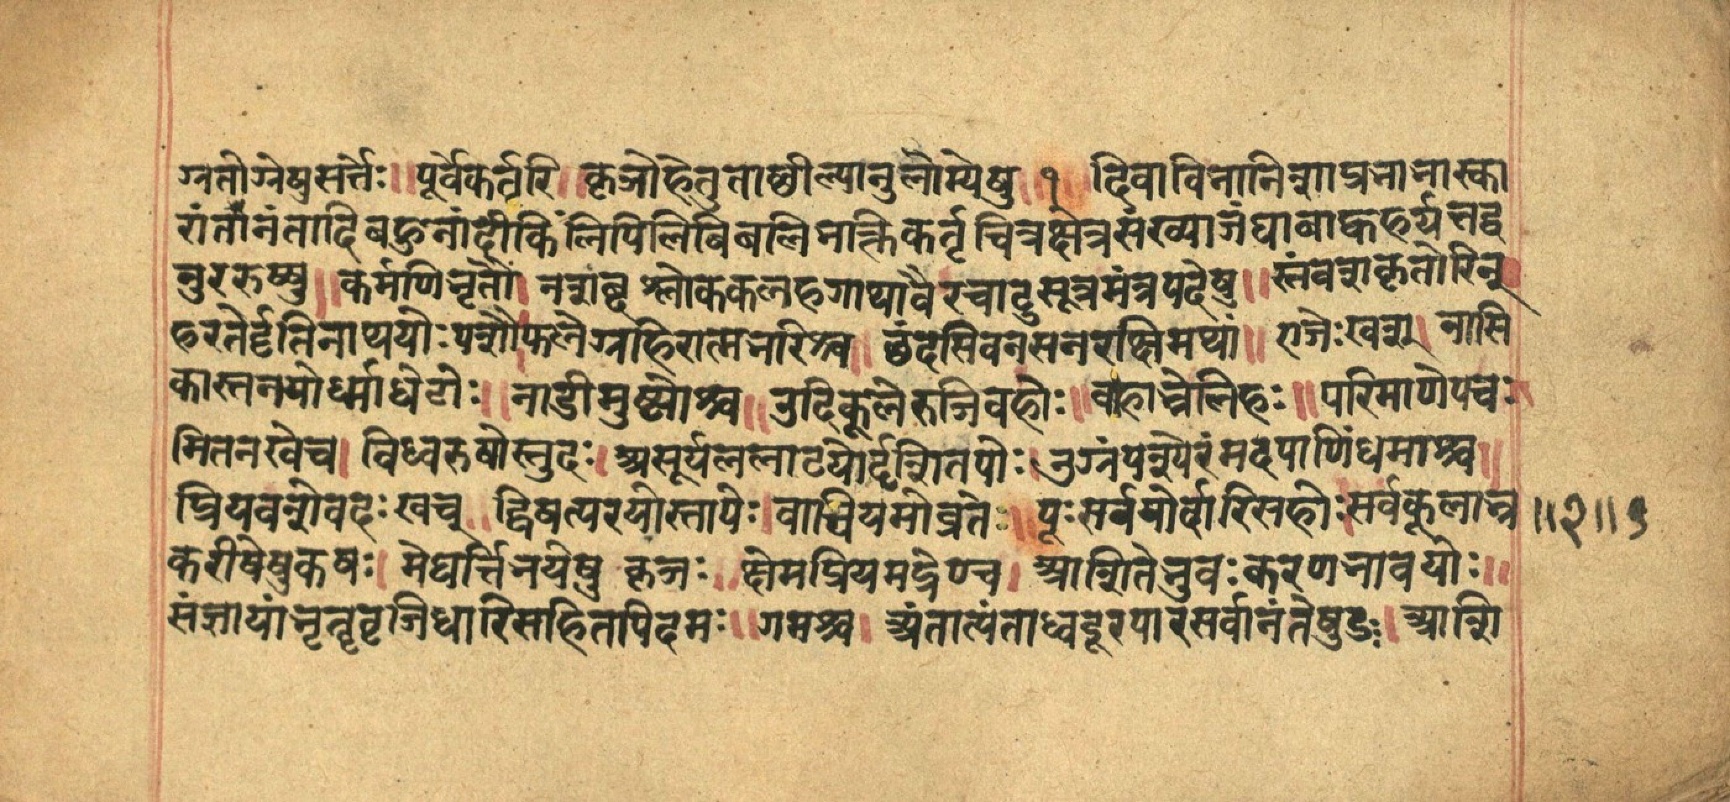 ग्रतोग्रेषुसर्त्तेः॥पूर्वेकर्तरि॥कृञोहेतुताछील्यानुलोम्येषु॥१ दिवाविभानिशाप्रभाभास्का
रांतानंतादिबहुनांदीकिंलिपिलिबिबलिभक्तिकर्तृचित्रक्षेत्रसंख्याजंघाबाह्वहर्यत्तद्ध
नुररुष्षु॥कर्मणिभृतौ।नशब्दश्लोककलहगाथावैरचाटुसूत्रमंत्रपदेषु॥स्तंबशकृतोरिन्
हरतेर्दृतिनाथयोःपशौ।फलेग्रहिरात्मभरिश्च॥छंदसिवनसनरक्षिमथां॥एजेःखश्।नासि
कास्तनयोर्ध्माधेटोः॥नाडीमुष्ट्योश्च॥उदिकूलेरुजिवहोः॥वहाभ्रेलिहः॥परिमाणेपचः
मितनखेच।विध्वरुषोस्तुदः।असूर्यललाटयोर्दृशितपोः।उग्रंपश्येरंमदपाणिंधमाश्च॥
प्रियवशेवदःखच्॥द्विषत्परयोस्तापेः।वाचियमोव्रते॥पूःसर्वयोर्दारिसहोः।सर्वकूलाभ्र ॥२॥
करीषेषुकषः।मेघर्त्तिभयेषु कृञः।क्षेमप्रियमद्रेण्च।आशितेभुवःकरणभावयोः॥
संज्ञायांभृतॄवृजिधारिसहितपिदमः॥गमश्च।अंतात्यंताध्वदूरपारसर्वानंतेषुडः।आशि